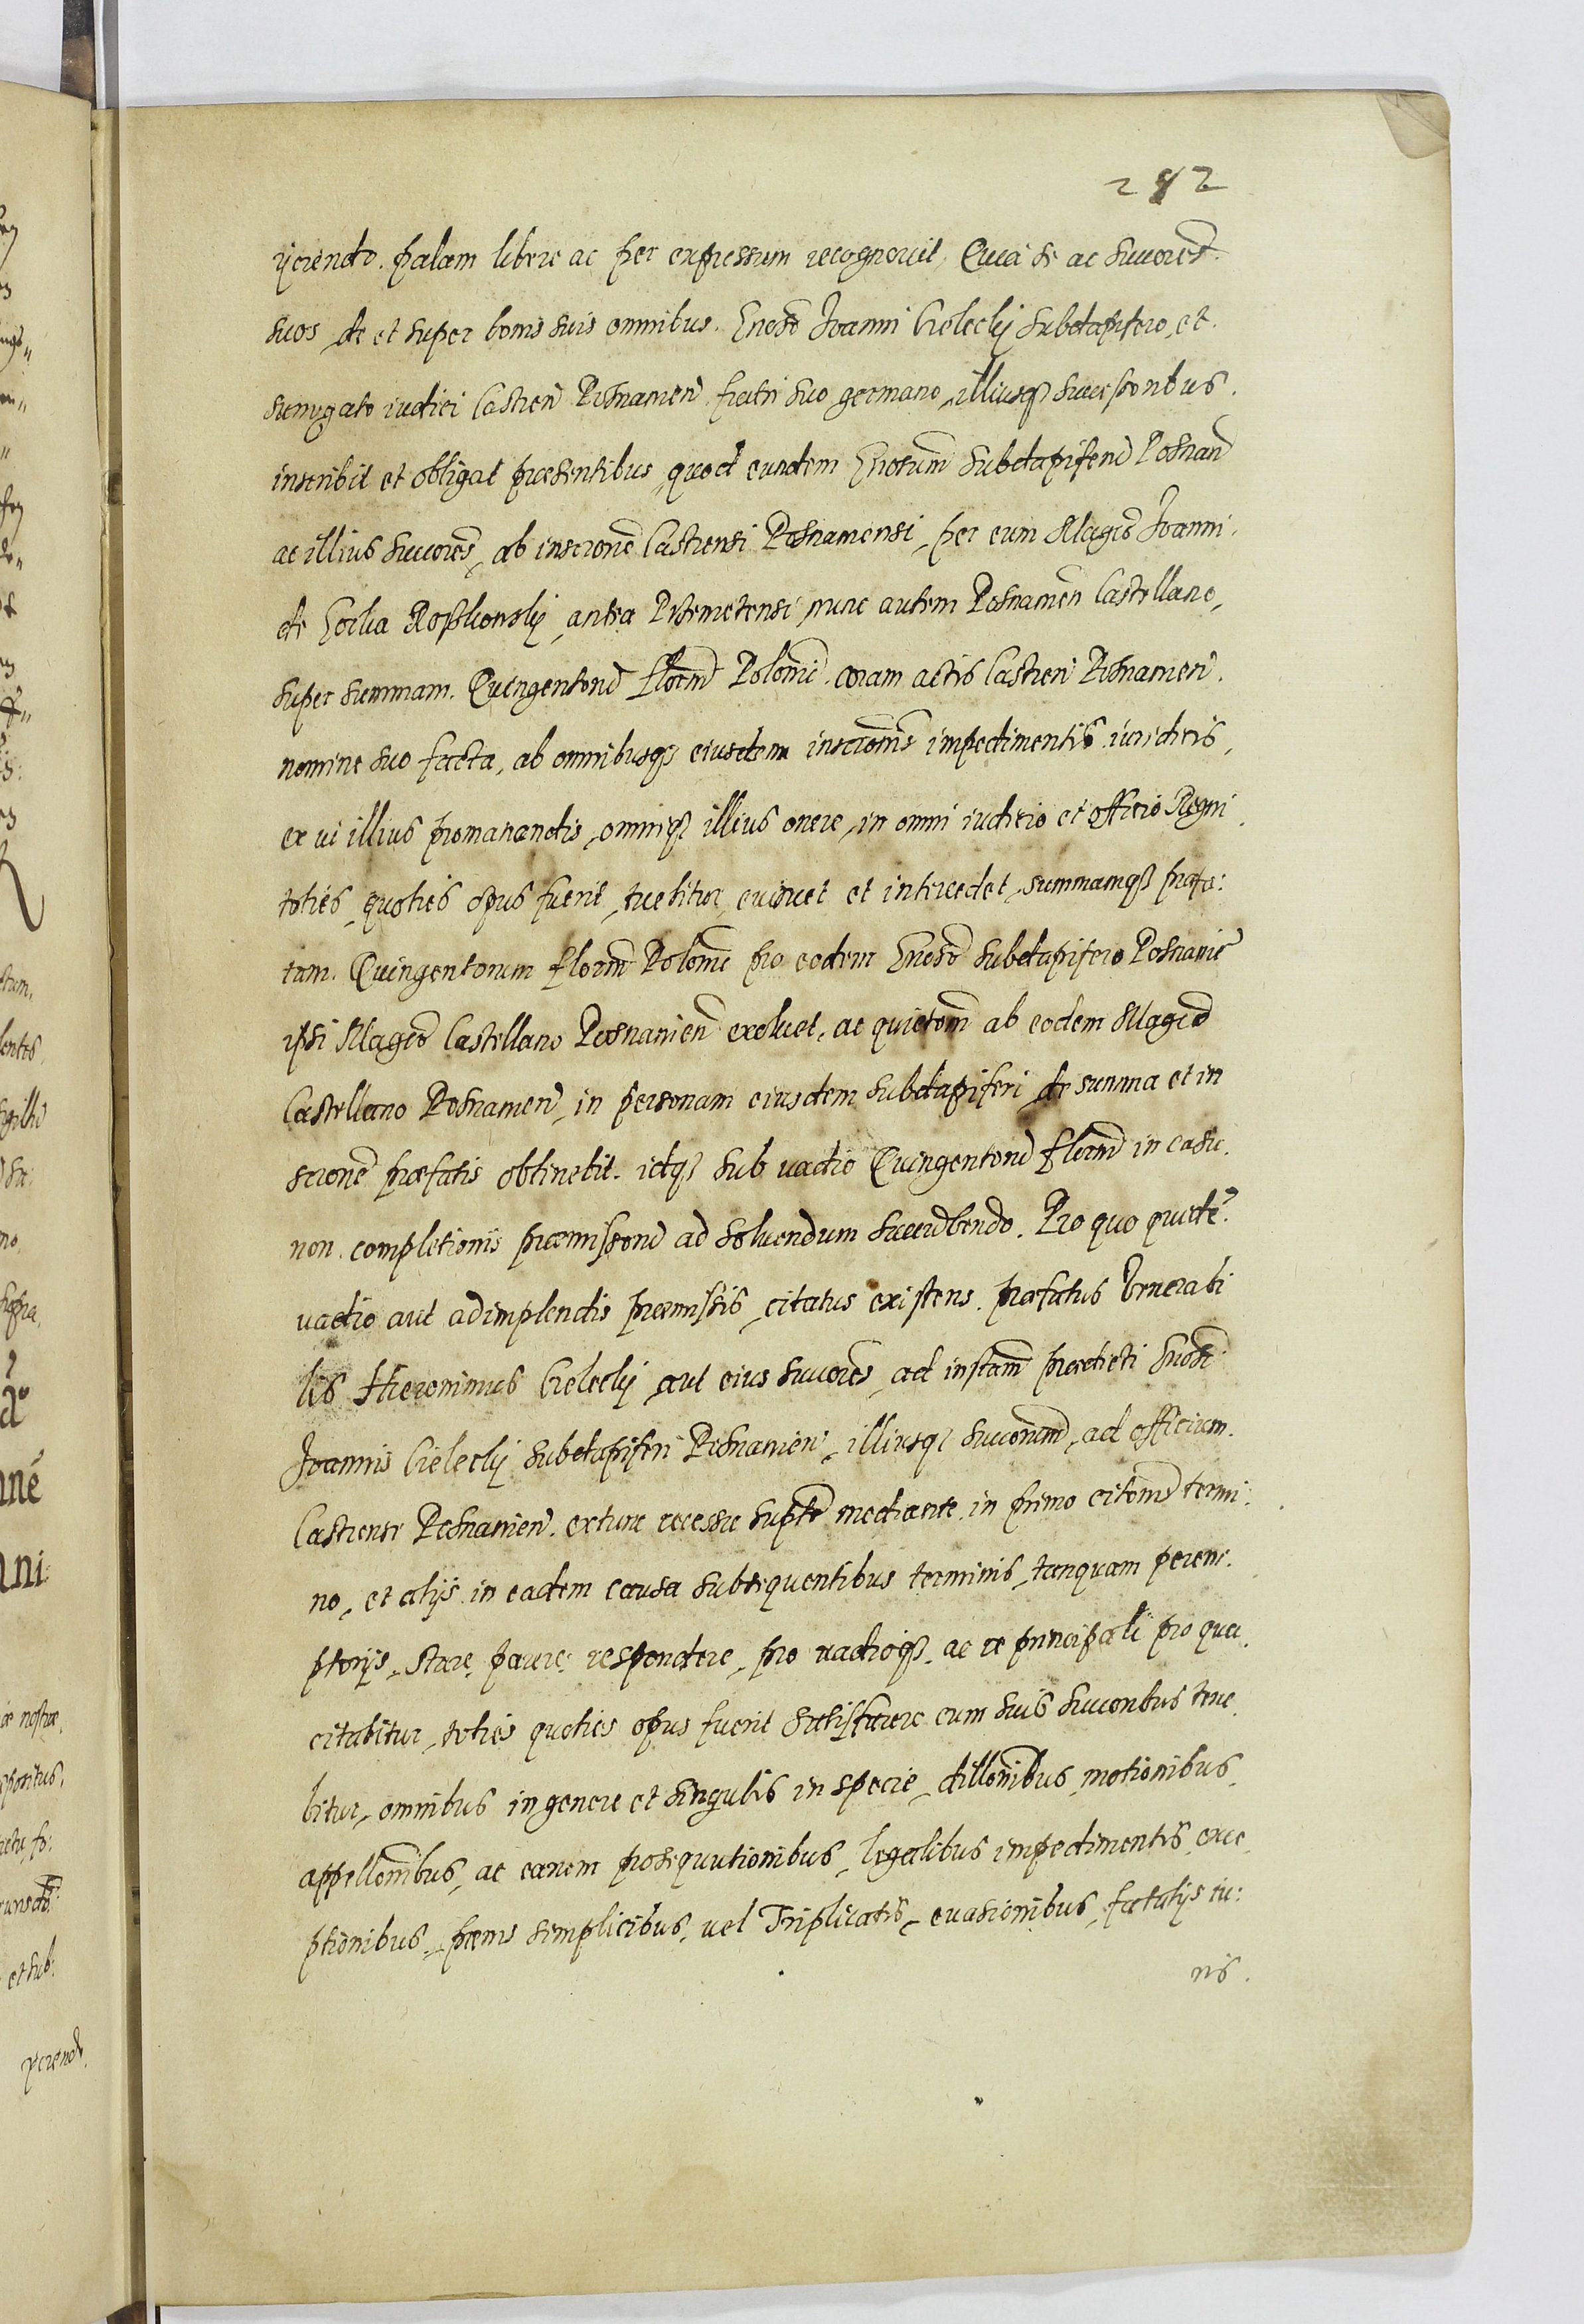 282
ijciendo. palam libere ac per expressum recognovit, Quia se ac succores
suos de et super bonis suis omnibus. Gneso Joanni Cielecky subdapifero, et
surrogato iudici Castren Posnanien fratri suo germano, illiusqz successoribus.
inscribit et obligat præsentibus, quod eundem Gnosum Subdapiferu Posnan
ac illius succores, ab inscrone Castrensi Posnaniensi, per eum Magco Joanni.
de Gorka Roszkowsky, antea Przemetensi nunc autem Posnanien Castellano,
super summam. Quingentoru floren Polonic. coram actis Castren Posnanien.
nomine suo facta, ab omnibusqz eiusdem inscronis impedimentis iuridicis,
ex vi illius promanandis, omniqz illius onere, in omni iudicio et officio Regni
toties, quoties opus fuerit, tuebitur, evincet et intercedet, summamqz præfa:
tam. Quingentorum floren Polonic pro eodem Gneso Subdapifero Posnanie
ipsi Magco Castellano Posnanien exoluet, ac quietaom ab eodem Magco
Castellano Posnanien, in personam eiusdem Subdapiferi, de summa et in
scrone præfatis obtinebit. idqz sub vadio Quingentoru floren in casu.
non. completionis præmissoru ad soluendum succumbendo. Pro quo quidē.
vadio aut adimplendis præmissis, citatus existens. præfatus Venerabi
lis Hieronimus Cielecky aut eius succores, ad instam prædicti Gnosi
Joannis Cielecky Subdapiferi Posnanien, illiusqz succorum, ad officium.
Castrense Posnanien. extunc recessu supto mediante in primo citonis termi:
no, et alijs in eadem causa subsequentibus terminis, tanquam perem:
ptorijs, stare, parere, respondere, pro vadioqz, ac re principali pro qua.
citabitur, toties quoties opus fuerit satisfacere cum suis succoribus tene
bitur, omnibus in genere et singulis in specie, dillonibus, motionibus,
appellonibus, ac earum prosequutionibus, legalibus impedimentis, exce
ptionibus, pænis simplicibus, vel Triplicatis, evasionibus, fatalijs iu:
ris.